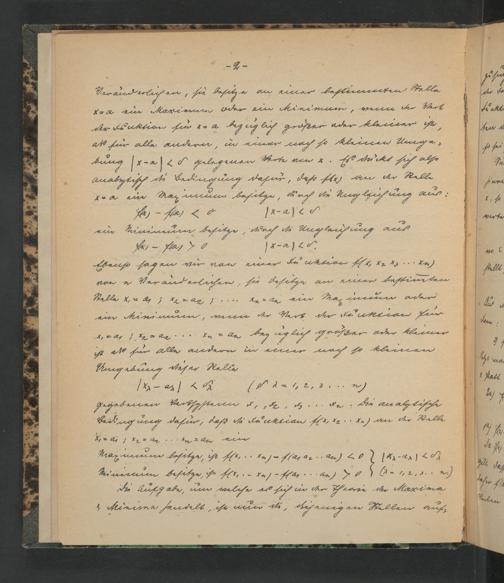 -2-
Veränderlichen, sie besitze an einer bestimmten Stelle
x=a ein Maximum oder ein Minimum, wenn der Wert
der Funktion für x=a bezüglich größer oder kleiner ist,
als für alle anderen, in einer noch so kleinen Umge-
bung |x-a|<δ gelegenen Werte von x. Es drückt sich also
analytisch die Bedingung dafür, daß f(x) an der Stelle
x=a ein Maximum besitze, durch die Ungleichung aus:
f(x) - f(a) < 0 |x-a|<δ
ein Minimum besitze, durch die Ungleichung aus
f(x) - f(a) > 0 |x-a|<δ.
Ebenso sagen wir von einer Funktion f(x₁ x₂ x₃ ... xₙ)
von n Veränderlichen, sie besitze an einer bestimmten
Stelle x₁=a₁; x₂=a₂; ... xₙ=aₙ ein Maximum oder
ein Minimum, wenn der Wert der Funktion für
x₁=a₁; x₂=a₂ ... xₙ=aₙ bezüglich größer oder kleiner
ist als für alle andern in einer noch so kleinen
Umgebung dieser Stelle
|x_λ-a_λ| < δ_λ (λ=1,2,3 ... n)
gegebenen Wertsystem x₁, x₂, x₃ ... xₙ. Die analytische
Bedingung dafür, daß die Funktion f(x₁ x₂ .. xₙ) an der Stelle
x₁=a₁; x₂=a₂ ... xₙ=aₙ ein
Maximum besitze, ist f(x₁ ... xₙ) - f(a₁ a₂ .. aₙ) < 0 } |x_λ-a_λ|<δ_λ
Minimum besitze, ist f(x₁ ... xₙ) - f(a₁ ... aₙ) > 0 } (λ=1,2,3 .. n)
Die Aufgabe, um welche es sich in der Theorie der Maxima
& Minima handelt, ist nun die, diejenigen Stellen auf,